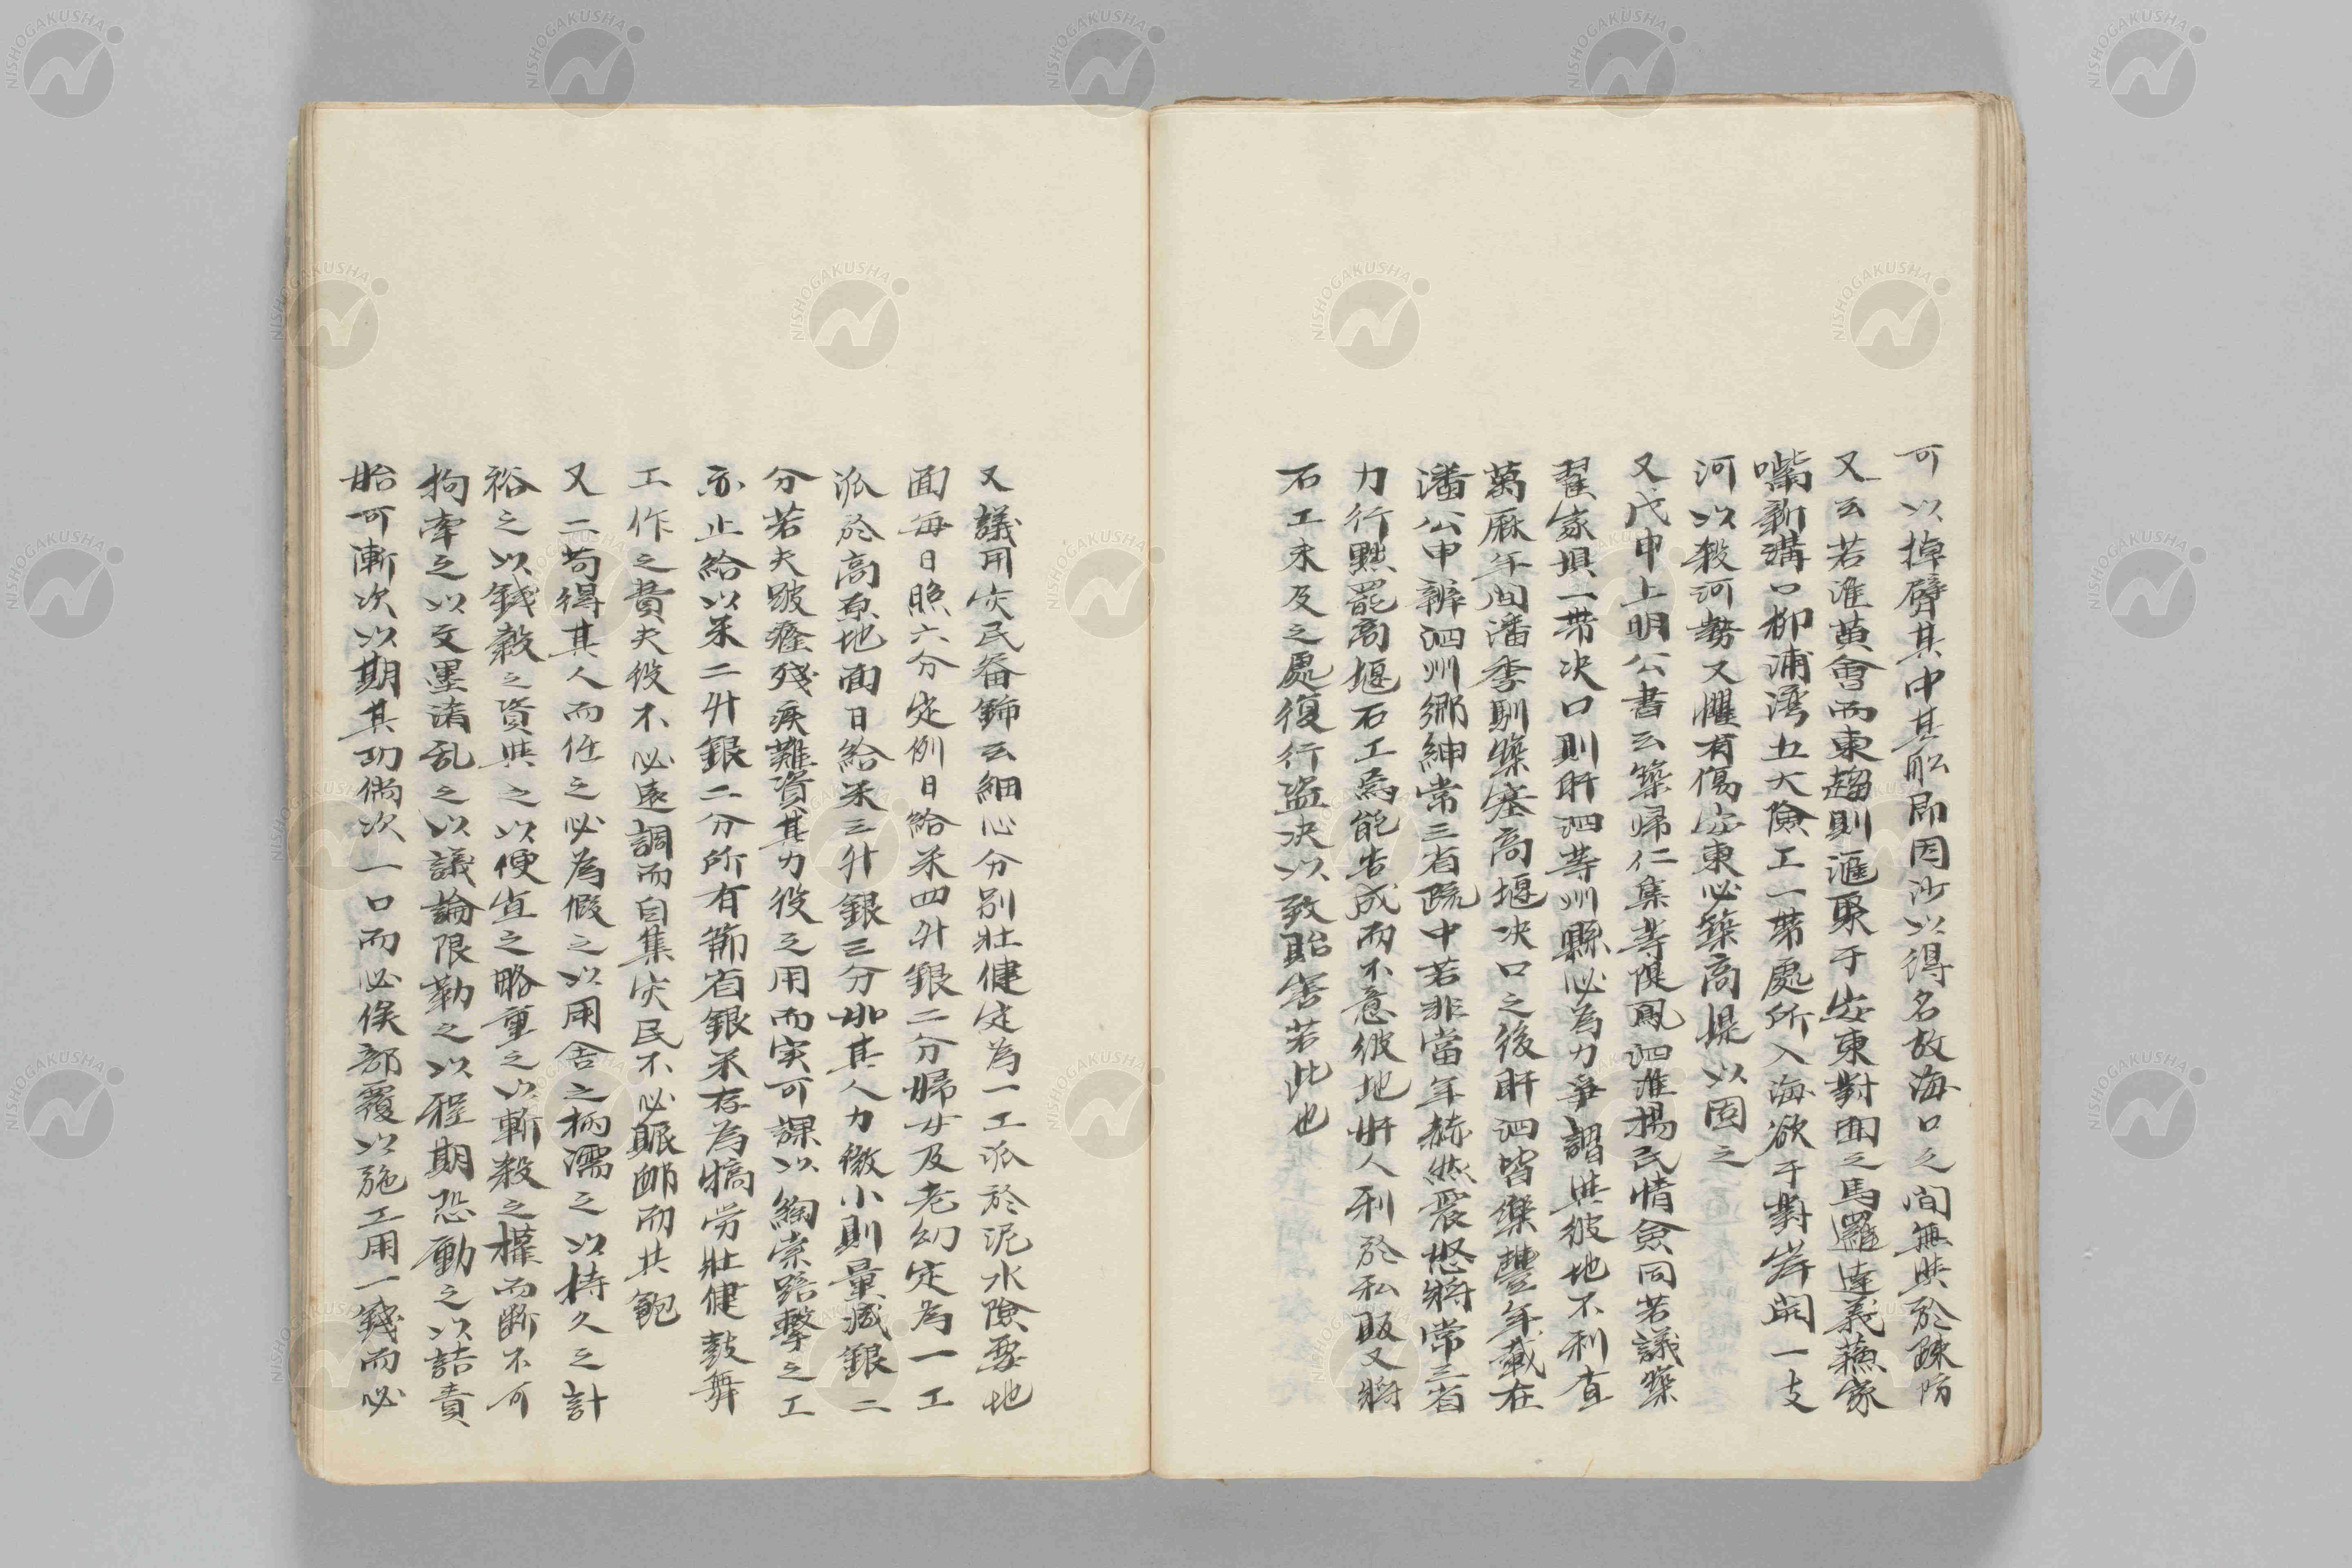 可以掉臂其中其船即因沙以得名故海口之間無與於疎防
又云若淮黄會而東趨則滙聚于安東對面之馬邏達義蘓家
嘴新溝口柳浦湾五大險工一帯處所入海欲于對岸開一支
河以殺河勢又懼有傷安東必築高堤以固之
又戊申上明公書云築歸仁集等隄鳳泗淮揚民情僉同若議築
翟家垻一帯决口則盱泗等州縣必為力爭謂與彼地不利查
萬厤年間潘季馴築塞高堰决口之後盱泗皆樂豐年載在
潘公申辨泗州郷紳常三省疏中若非當年赫然震怒將常三省
力行黙罷高堰石工焉能告成而不意彼地奸人利於私販又將
石工未及之處復行盗决以致貽害若此也
又議用灾民畚鍤云細心分别壮健定為一工派於泥水險要地
面毎日照六分定例日給米四升銀二分婦女及老幻定為一工
派於高原地面日給米三升銀三分如其人力微小則量减銀二
分若夫跛癃殘疾難資其力役之用而実可課以綯索踣擊之工
亦止給以米二升銀二分所有節省銀米存為犒労壮健鼓舞
工作之費夫役不必遠調而自集灾民不必賑邮而共飽
又二苟得其人而任之必為假之以用舍之柄濡之以持久之計
裕之以錢穀之資與之以便宜之略重之以斬殺之權而断不可
拘牽之以文墨淆乱之以議論限勒之以程期恐動之以詰責
貽可漸次以期其功倘次一口而必俟部覆以施工用一錢而必
NISHOGAKUSHA